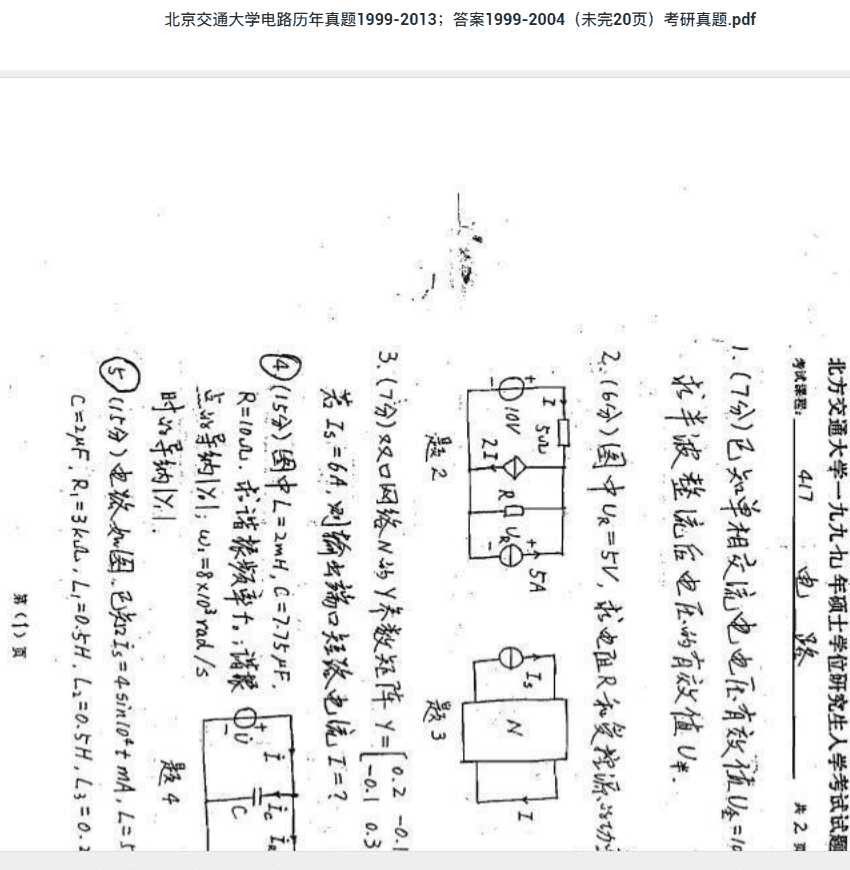 北京交通大学电路历年真题1999-2013；答案1999-2004（未完20页）考研真题.pdf
北方交通大学一九九七年硕士学位研究生入学考试试题
考试课程： 417 电路 共2页
1.(7分)已知单相交流电电压有效值U全=10
求半波整流后电压的有效值U半.
2.(6分)图中UR=5V,求电阻R和受控源的功
I 5Ω
+ 10V - 2I R + UR - 5A
题2
Is N I
题3
3.(7分)双口网络N的Y参数矩阵 Y=[0.2 -0.1
-0.1 0.3
若Is=6A,则输出端口短路电流I=?
④(15分)图中L=2mH,C=7.75μF.
R=10Ω.求谐振频率f。;谐振
点的导纳|Y₀|;ω₁=8×10³rad/s
时的导纳|Y₁|.
+ U̇ - İ C İc İR
题4
⑤(15分)电路如图.已知is=4sin10⁴t mA,L=5
C=2μF,R₁=3kΩ,L₁=0.5H,L₂=0.5H,L₃=0.2
第(1)页